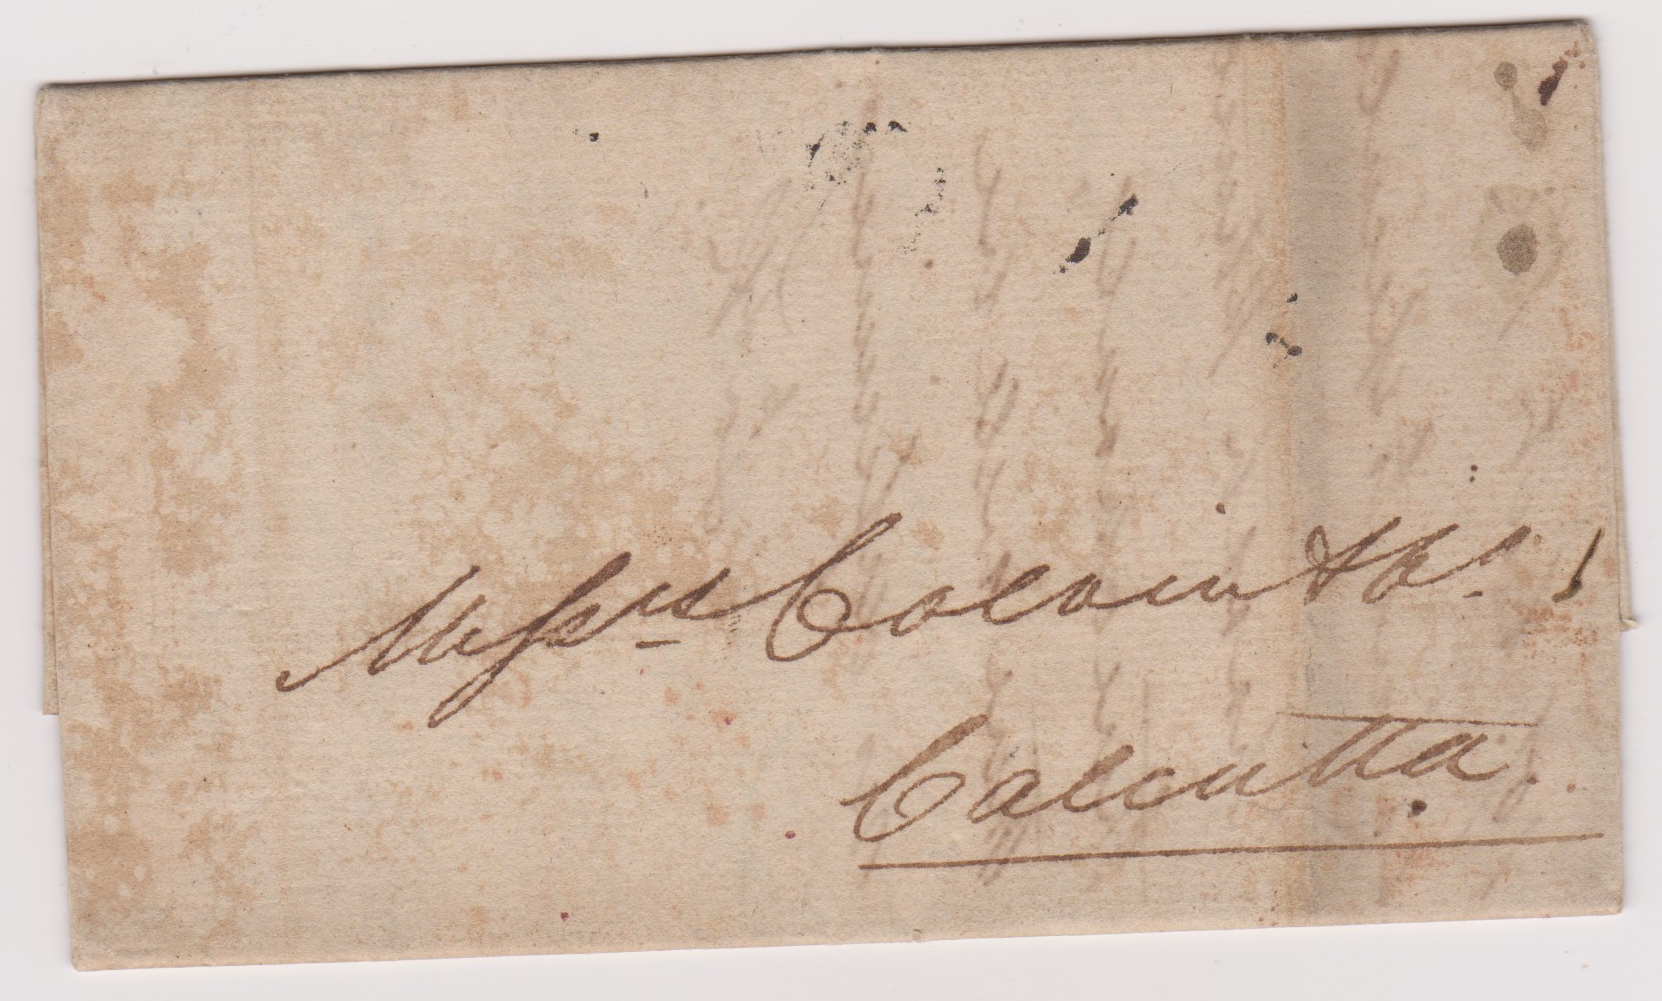 Messrs Colvin & Co.
Calcutta.